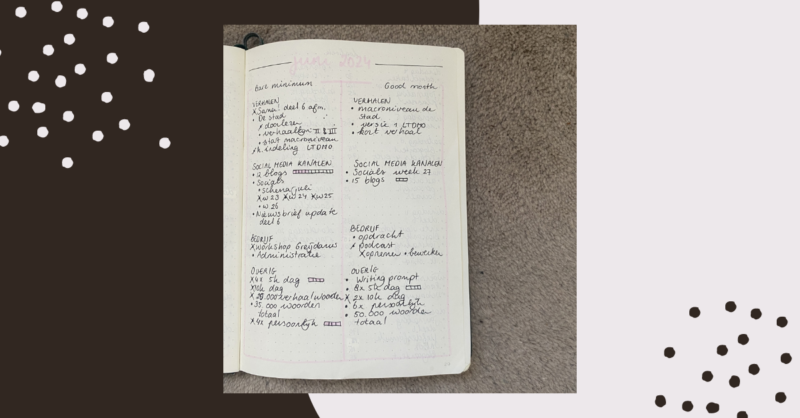 june 2024
Bare minimum
VERHALEN
x Sanai deel 6 afm.
• De stad
x doorlezen
• verhaallijn II & III
• start macroniveau
x h. indeling LTDMO
SOCIAL MEDIA KANALEN
• 2 blogs
• Socials
• schema juli
x w23 x w24 x w25
• w26
• Nieuwsbrief update
deel 6
BEDRIJF
x Workshop Greijdanus
• Administratie
OVERIG
x 4x 5k dag
x 10k dag
x 25.000 verhaal woorden
• 35.000 woorden
totaal
x 4x persoonlijk
Good month
VERHALEN
• macroniveau de
stad
• versie 1 LTDMO
• kort verhaal
SOCIAL MEDIA KANALEN
• Socials week 27
• 15 blogs
BEDRIJF
• opdracht
x podcast
x opnemen • bewerken
OVERIG
• Writing prompt
• 8x 5k dag
x 2x 10k dag
• 6x persoonlijk
• 50.000 woorden
totaal